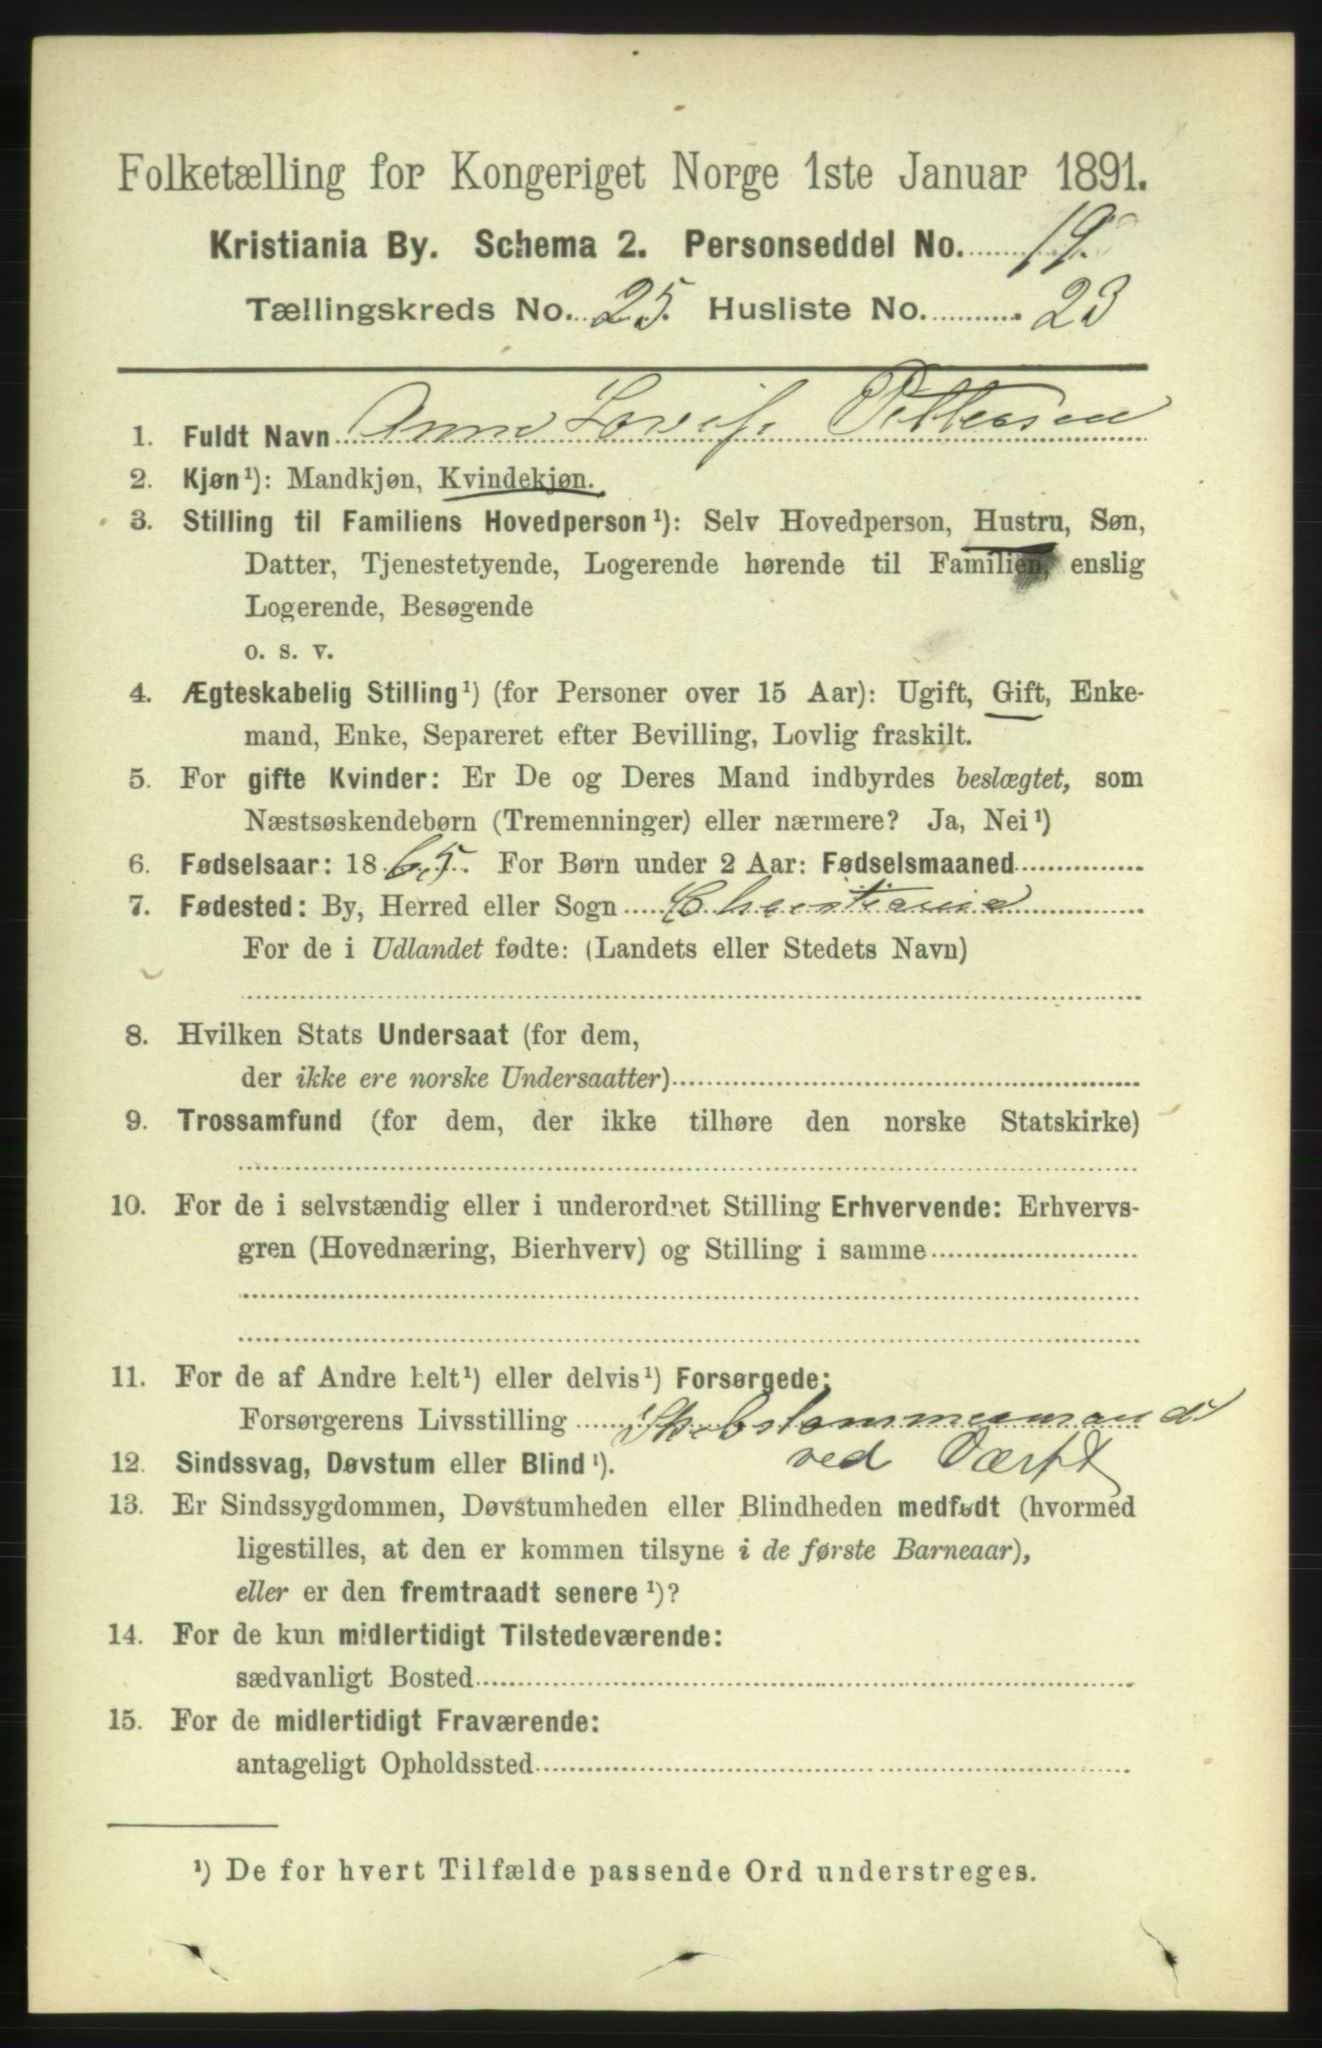 Folketælling for Kongeriget Norge 1ste Januar 1891.
Kristiania By. Schema 2. Personseddel No. 19.
Tællingskreds No. 25. Husliste No. 23
1. Fuldt Navn Anna Lovise Pettersen
2. Kjøn¹): Mandkjøn, Kvindekjøn.
3. Stilling til Familiens Hovedperson¹): Selv Hovedperson, Hustru, Søn,
Datter, Tjenestetyende, Logerende hørende til Familien, enslig
Logerende, Besøgende
o. s. v.
4. Ægteskabelig Stilling¹) (for Personer over 15 Aar): Ugift, Gift, Enke-
mand, Enke, Separeret efter Bevilling, Lovlig fraskilt.
5. For gifte Kvinder: Er De og Deres Mand indbyrdes beslægtet, som
Næstsøskendebørn (Tremenninger) eller nærmere? Ja, Nei¹)
6. Fødselsaar: 1865. For Børn under 2 Aar: Fødselsmaaned
7. Fødested: By, Herred eller Sogn Christiania
For de i Udlandet fødte: (Landets eller Stedets Navn)
8. Hvilken Stats Undersaat (for dem,
der ikke ere norske Undersaatter)
9. Trossamfund (for dem, der ikke tilhøre den norske Statskirke)
10. For de i selvstændig eller i underordnet Stilling Erhvervende: Erhvervs-
gren (Hovednæring, Bierhverv) og Stilling i samme
11. For de af Andre helt¹) eller delvis¹) Forsørgede:
Forsørgerens Livsstilling Skibstømmermand
ved Værft
12. Sindssvag, Døvstum eller Blind¹).
13. Er Sindssygdommen, Døvstumheden eller Blindheden medfødt (hvormed
ligestilles, at den er kommen tilsyne i de første Barneaar),
eller er den fremtraadt senere¹)?
14. For de kun midlertidigt Tilstedeværende:
sædvanligt Bosted
15. For de midlertidigt Fraværende:
antageligt Opholdssted
¹) De for hvert Tilfælde passende Ord understreges.